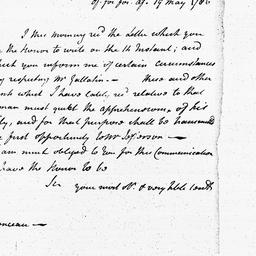 I this morning rec'd the Letter which you
the Honor to write on the 11 Instant; and
you inform me of certain circumstances
respecting Mr Gallatin. — these and other
which I have lately rec'd relative to that
man must quiet the apprehensions of his
and for that purpose shall be transmitted
first opportunity to Mr Jefferson —
am much obliged to You for this Communication
have the Honor to be
Sir your most Ob.t & very hble Servt